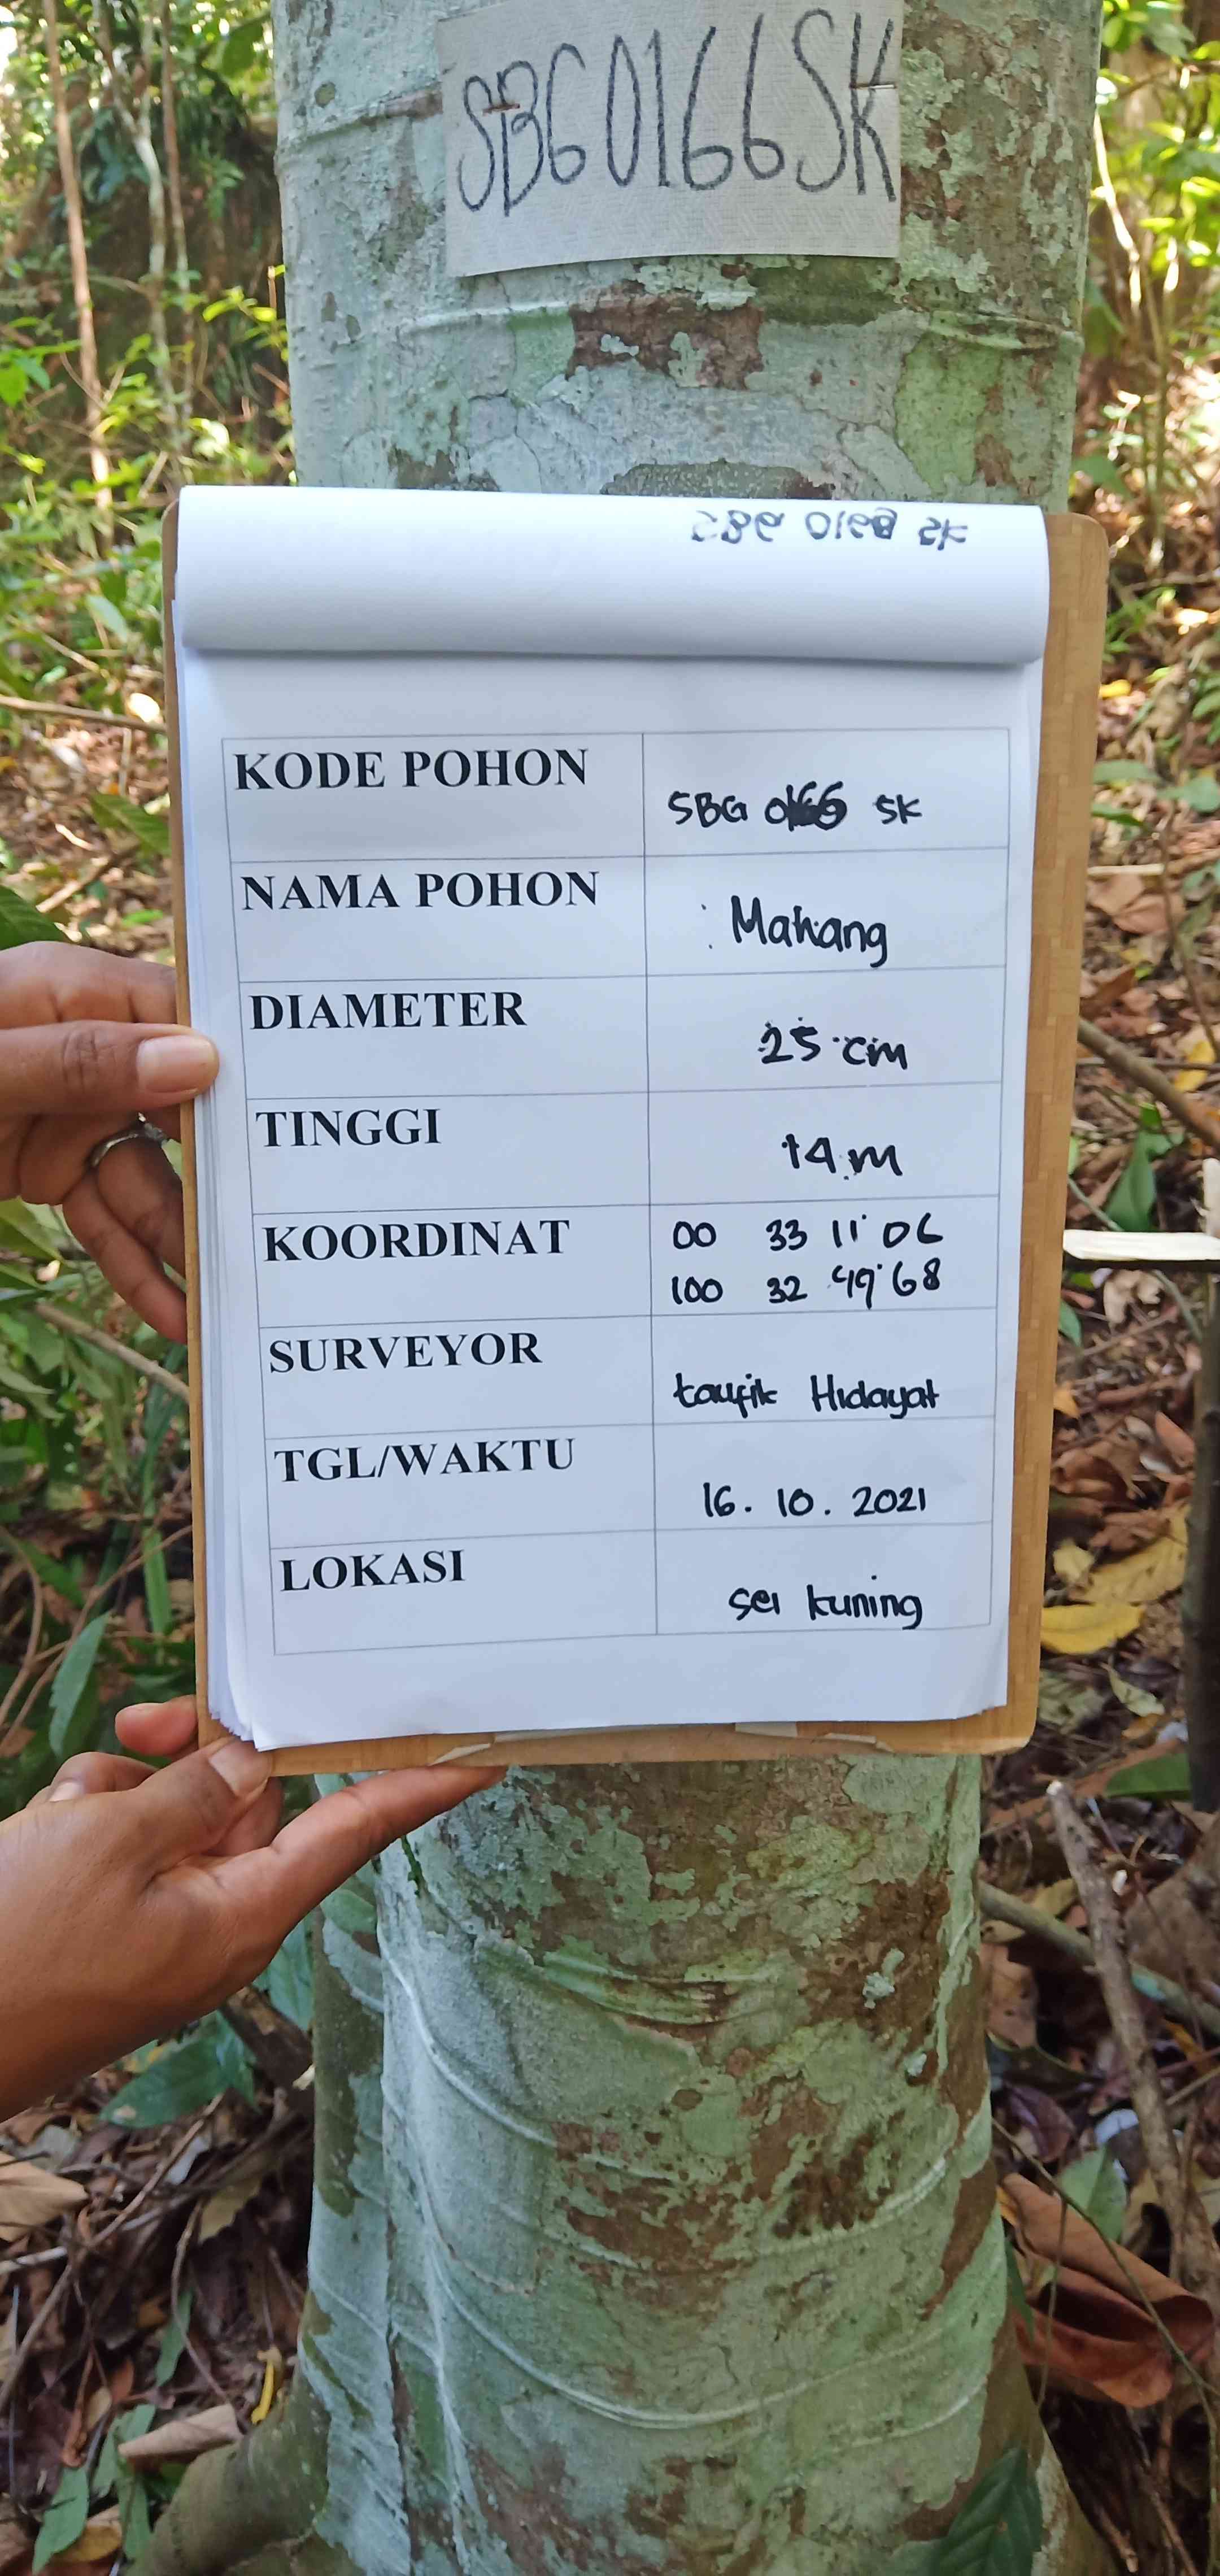 SBG0166SK
KODE POHON
SBG 0166 SK
NAMA POHON
: Mahang
DIAMETER
25 cm
TINGGI
14 m
KOORDINAT
00 33 11.06
100 32 49.68
SURVEYOR
taufik Hidayat
TGL/WAKTU
16. 10. 2021
LOKASI
sei kuning